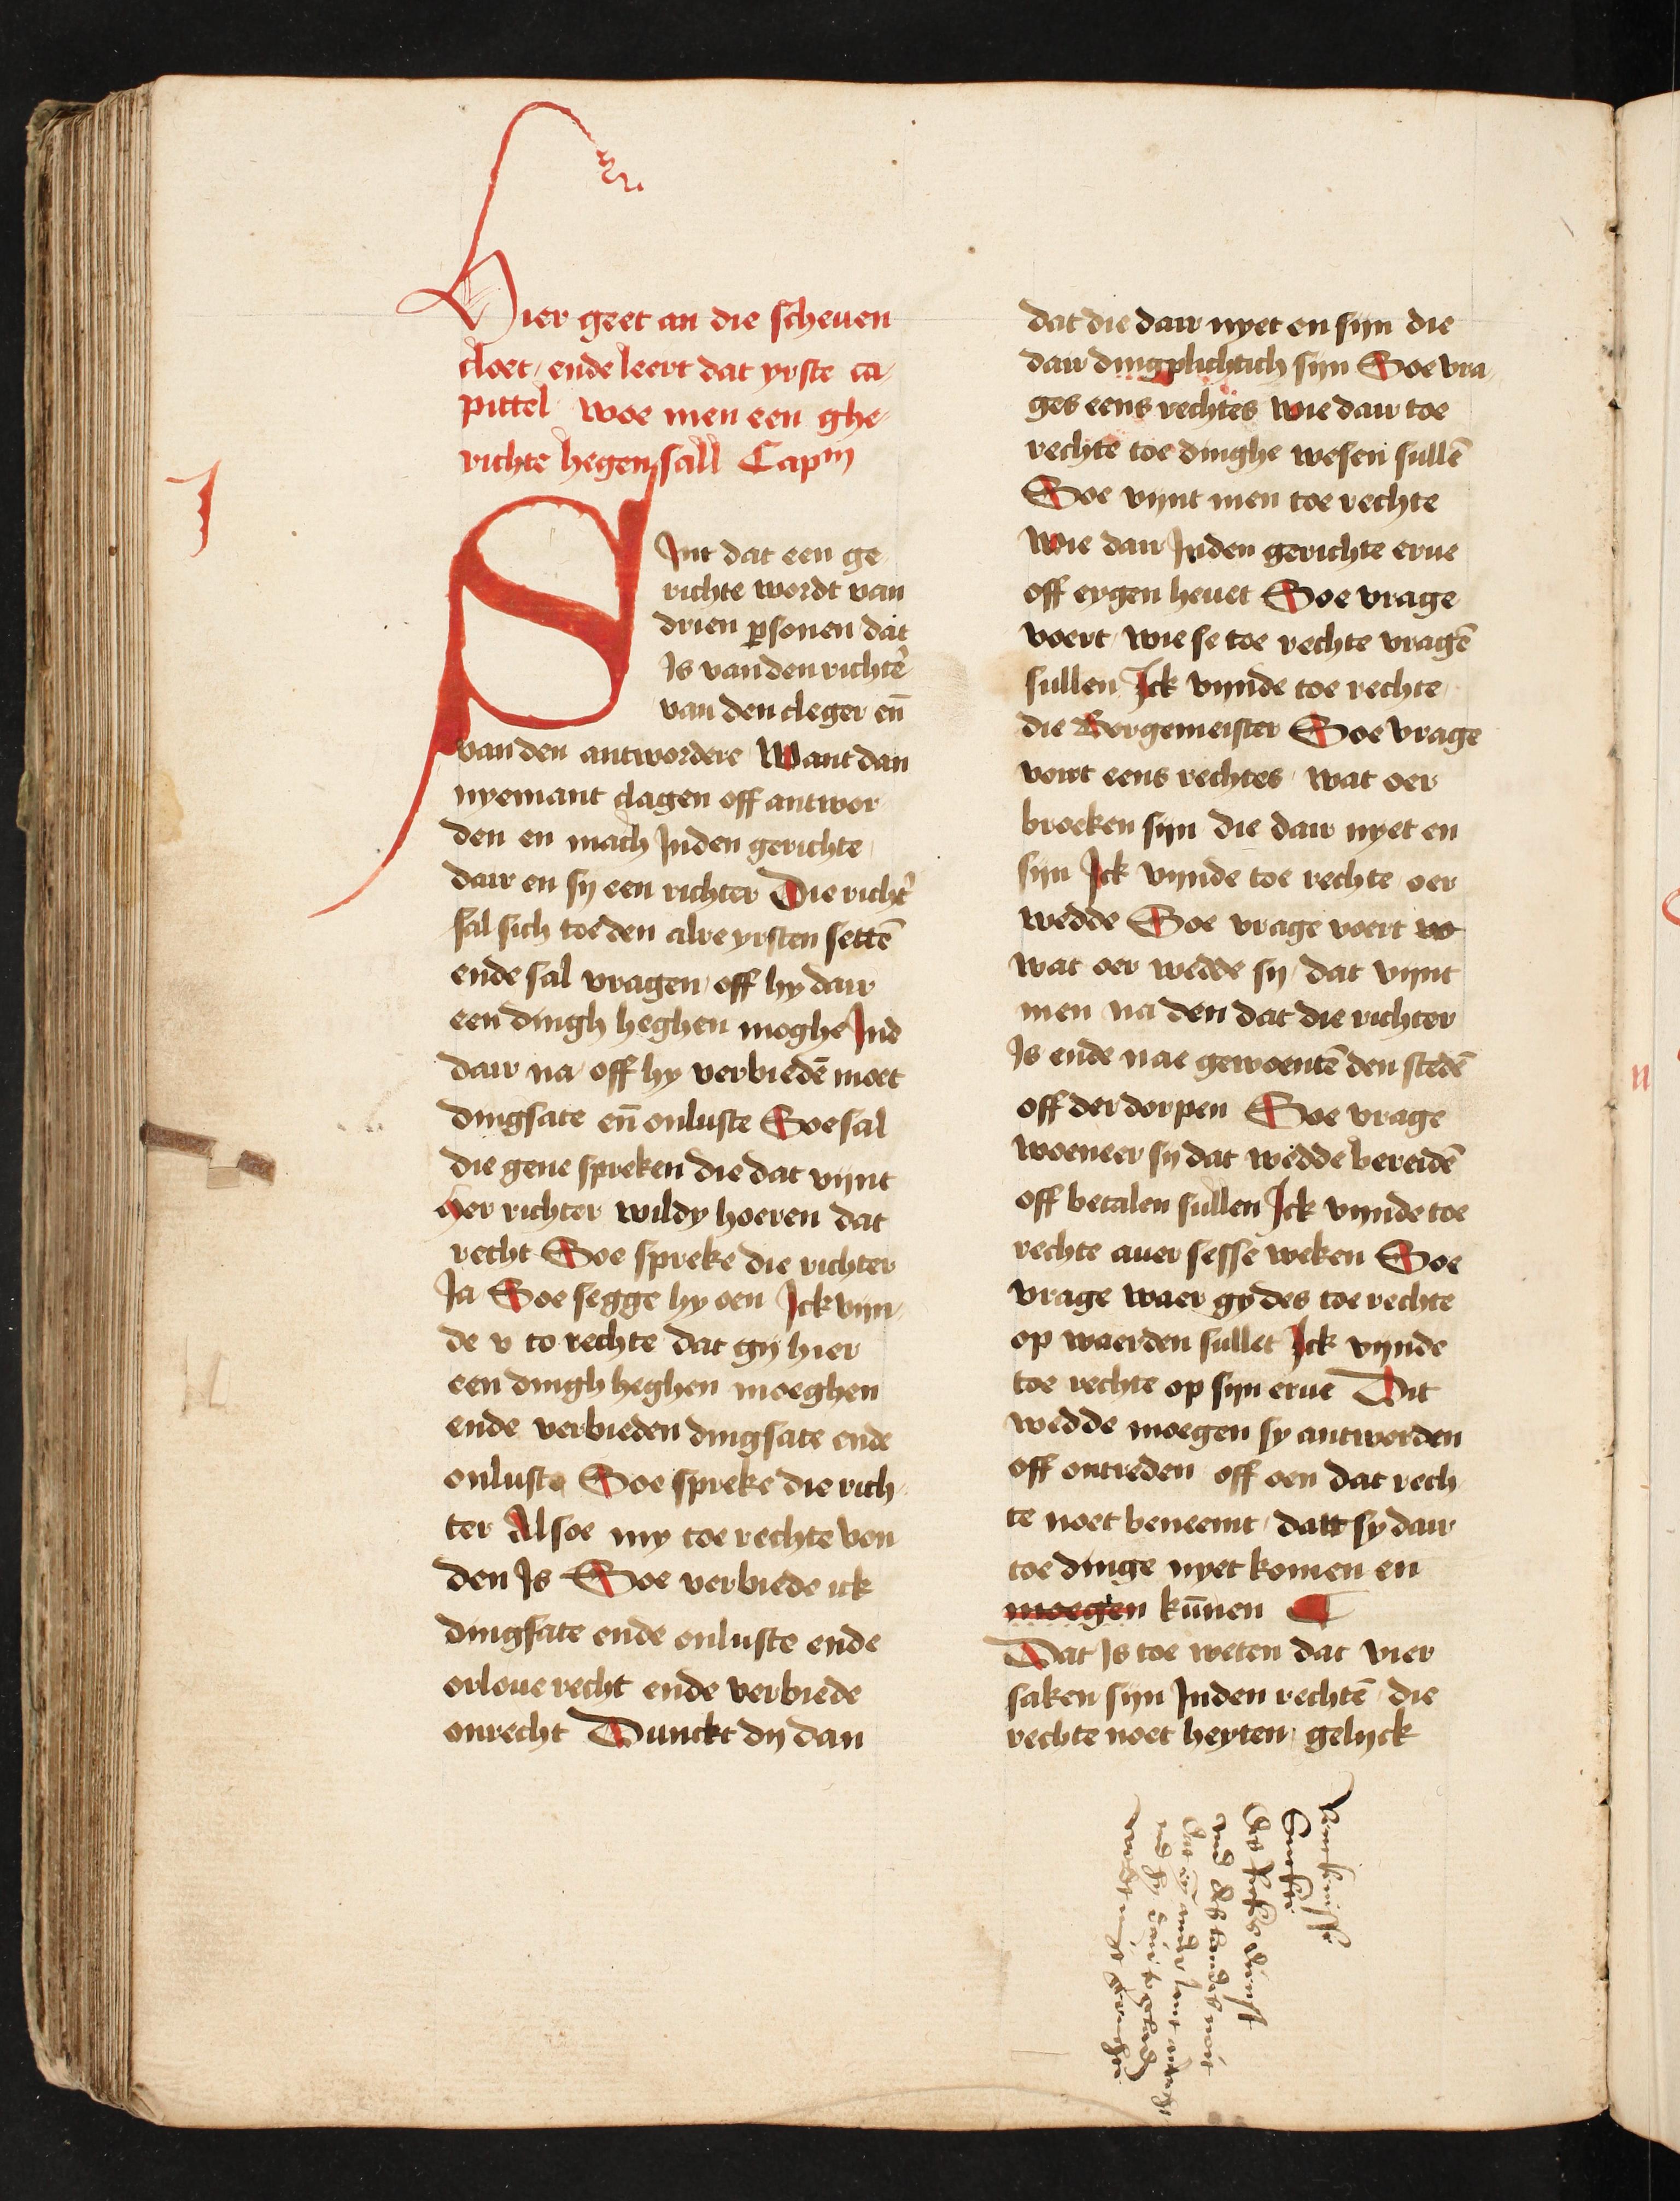 Hier geet an die scheuen
cloet, ende leert dat yrste ca-
pittel woe men een ghe-
richte hegen sall Capm
I
SInt dat een ge
richte wordt van
drien psonen dat
Is van den richte᷑
van den cleger en̄
van den antwordere Want dan
nyemant clagen off antwor
den en mach Inden gerichte
dair en sy een richter Die richt᷑
sal sich toe den alre yrsten settē
ende sal vragen off hy dair
een dingh heghen moghe Ind
dair na off hy verbiedē moet
dingsate en̄ onluste Soe sal
die gene spreken die dat vijnt
her richter wildy hoeren dat
recht Soe spreke die richter
Ja Soe segge hy oen Ick vijn-
de v to rechte dat gij hier
een dingh heghen moeghen
ende verbieden dingsate ende
onluste Soe spreke die rich-
ter Alsoe my toe rechte von
den Is Soe verbiede ick
dingsate ende onluste ende
orloue recht ende verbiede
onrecht Dunckt dy dan
dat die dair nyet en sijn die
dair dingplichtich sijn Soe vra-
ges eens rechtes wie dair toe
rechte toe dinghe wesen sullē
Soe vijnt men toe rechte
Wie dair Inden gerichte erue
off eygen heuet Soe vrage
voert, wie se toe rechte vragē
sullen Ick vijnde toe rechte
die Borgemeister Soe vrage
voirt eens rechtes, wat oer
broeken sijn die dair nyet en
sijn Ick vijnde toe rechte oer
wedde Soe vrage voert
wat oer wedde sy, dat vijnt
men na den dat die richter
Is ende nae gewoentē den stedē
off der dorpen Soe vrage
woeneer sy dat wedde bereidē
off betalen sullen Ick vijnde toe
rechte auer sesse weken Soe
vrage waer gy des toe rechte
op waerden sullet Ick vijnde
toe rechte op sijn erue Dit
wedde moegen sy antwerden
off ontreden off oen dat rech
te noet beneemt, datt sy dair
toe dinge nyet komen en
moegen kūnen ¶
Dat Is toe weten dat vier
saken sijn Inden rechtē die
rechte noet heyten, gelijck
Vanckenisse
Suecte
Des Rikes dienst